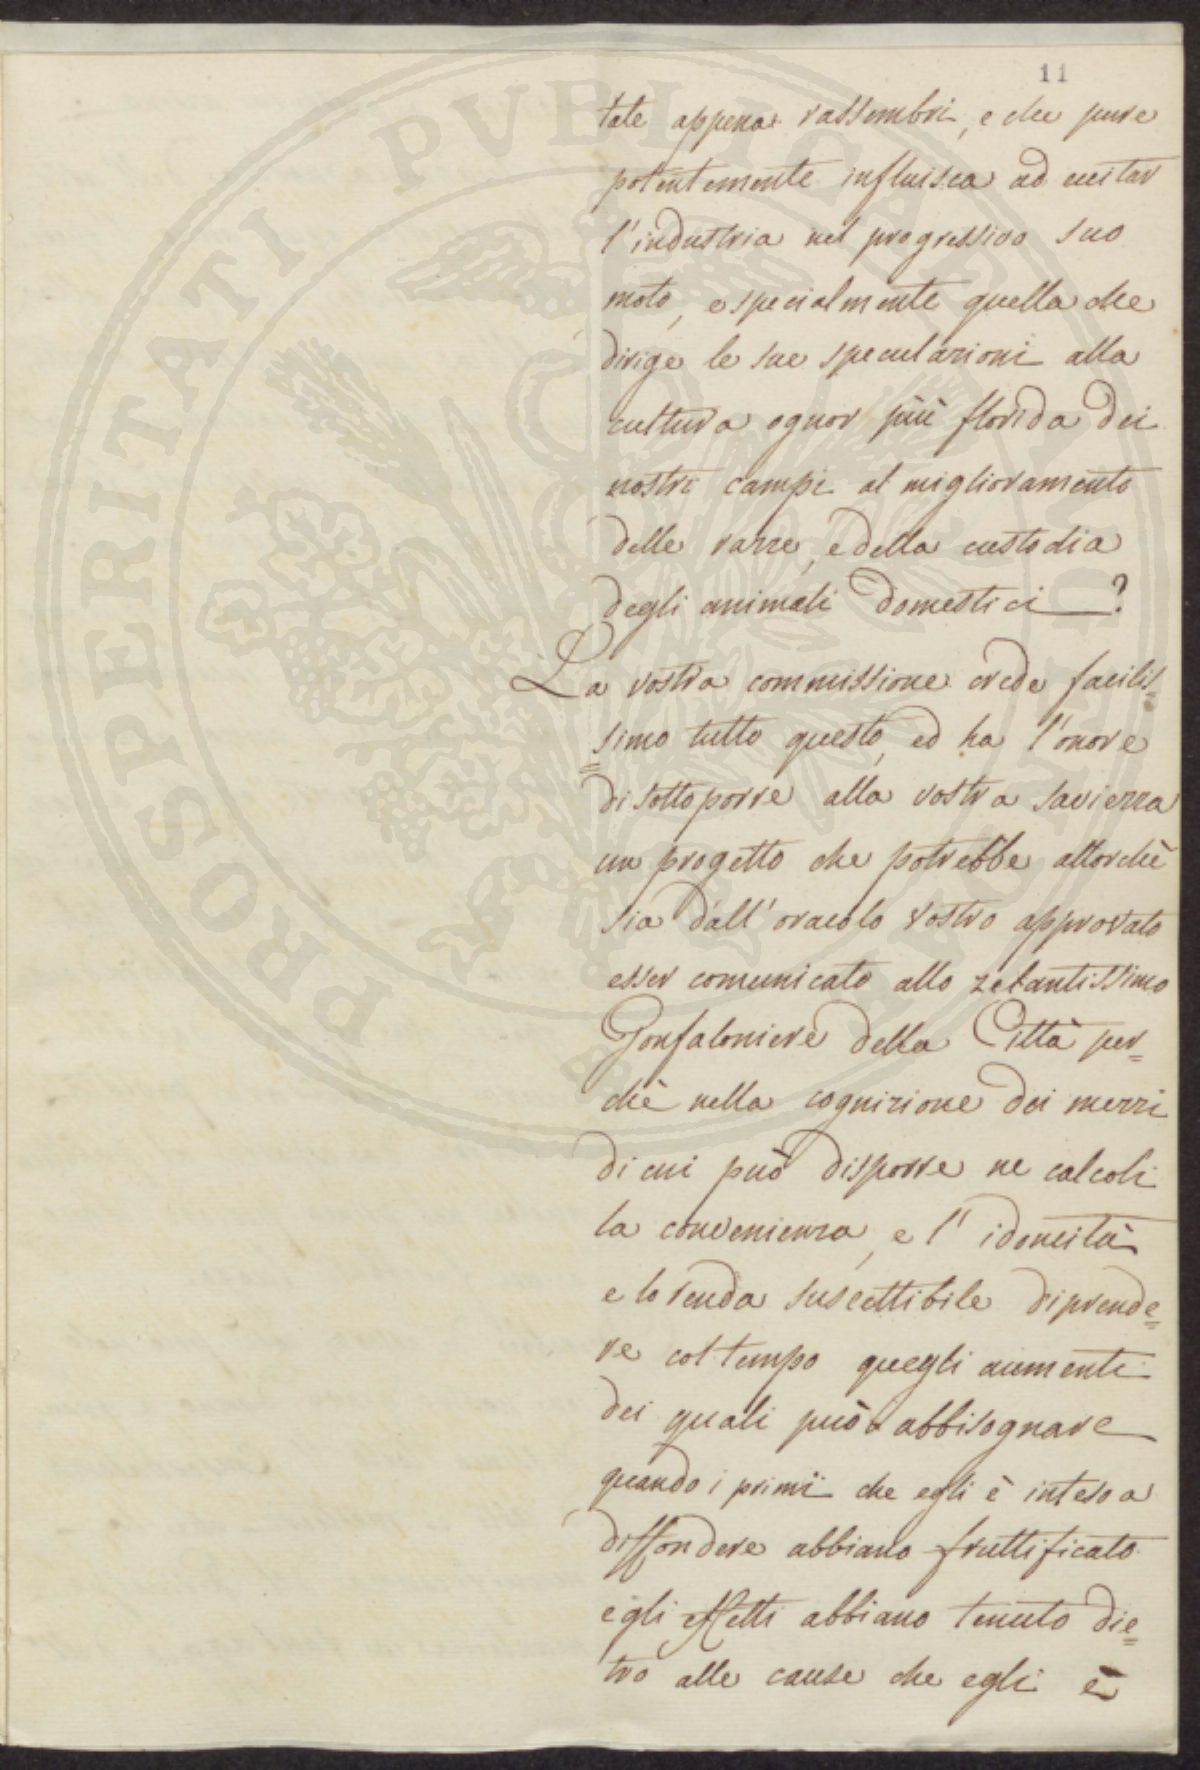 11
tale appena rassembri, e che pure
potentemente influisca ad eccitar
l'industria nel progressivo suo
moto, e specialmente quella che
dirige le sue speculazioni alla
cultura ognor più florida dei
nostri campi al miglioramento
delle razze, e della custodia
degli animali domestici?
La vostra commissione crede facilis=
=simo tutto questo, ed ha l'onore
di sottoporre alla vostra saviezza
un progetto che potrebbe allorchè
sia dall'oracolo vostro approvato
esser comunicato allo zelantissimo
Gonfaloniere della Città per=
chè nella cognizione dei mezzi
di cui può disporre ne calcoli
la convenienza, e l'idoneità
e lo renda suscettibile di prende=
re col tempo quegli aumenti
dei quali può abbisognare
quando i primi che egli è inteso a
diffondere abbiano fruttificato
e gli effetti abbiano tenuto die=
tro alle cause che egli è
PROSPERITATI PVBLICAE AVGENDAE